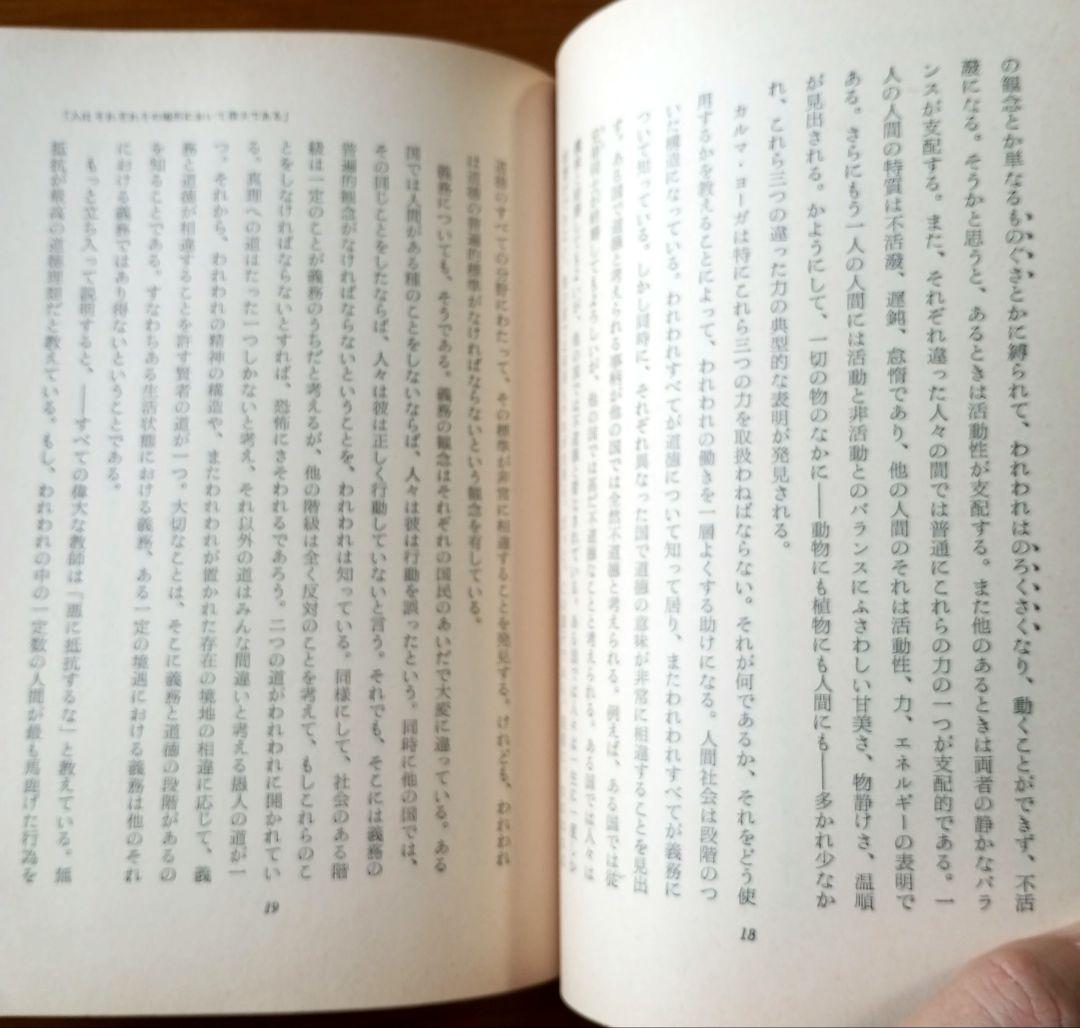 の観念とか単なるものぐさとかに縛られて、われわれはのろくさくなり、動くことができず、不活
潑になる。そうかと思うと、あるときは活動性が支配する。また他のあるときは両者の静かなバラ
ンスが支配する。また、それぞれ違った人々の間では普通にこれらの力の一つが支配的である。一
人の人間の特質は不活潑、遅鈍、怠惰であり、他の人間のそれは活動性、力、エネルギーの表明で
ある。さらにもう一人の人間には活動と非活動とのバランスにふさわしい甘美さ、物静けさ、温順
が見出される。かようにして、一切の物のなかに——動物にも植物にも人間にも——多かれ少なか
れ、これら三つの違った力の典型的な表明が発見される。
カルマ・ヨーガは特にこれら三つの力を取扱わねばならない。それが何であるか、それをどう使
用するかを教えることによって、われわれの働きを一層よくする助けになる。人間社会は段階のつ
いた構造になっている。われわれすべてが道徳について知って居り、またわれわれすべてが義務に
ついて知っている。しかし同時に、それぞれ異なった国で道徳の意味が非常に相違することを見出
す。ある国で道徳と考えられる事柄が他の国では全然不道徳と考えられる。例えば、ある国では従
他の国では甚だ不道徳なことと考えられる。ある国では人々は
18
「人はそれぞれその場所において偉大である」
道徳のすべての分野にわたって、その標準が非常に相違することを発見する。けれども、われわれ
は道徳の普遍的標準がなければならないという観念を有している。
義務についても、そうである。義務の観念はそれぞれの国民のあいだで大変に違っている。ある
国では人間がある種のことをしないならば、人々は彼は行動を誤ったという。同時に他の国では、
その同じことをしたならば、人々は彼は正しく行動していないと言う。それでも、そこには義務の
普遍的観念がなければならないということを、われわれは知っている。同様にして、社会のある階
級は一定のことが義務のうちだと考えるが、他の階級は全く反対のことを考えて、もしこれらのこ
とをしなければならないとすれば、恐怖にさそわれるであろう。二つの道がわれわれに開かれてい
る。真理への道はたった一つしかないと考え、それ以外の道はみんな間違いと考える愚人の道が一
つ。それから、われわれの精神の構造や、またわれわれが置かれた存在の境地の相違に応じて、義
務と道徳が相違することを許す賢者の道が一つ。大切なことは、そこに義務と道徳の段階があるの
を知ることである。すなわちある生活状態における義務、ある一定の境遇における義務は他のそれ
における義務ではあり得ないということである。
もっと立ち入って説明すると、——すべての偉大な教師は「悪に抵抗するな」と教えている。無
抵抗が最高の道徳理想だと教えている。もし、われわれの中の一定数の人間が最も馬鹿げた行為を
19